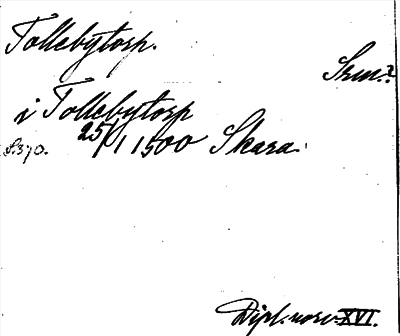 Tollebytorp.
Srm.?
i Tollebytorp
S. 370. 25/1 1500 Skara.
Dipl. norv. XVI.